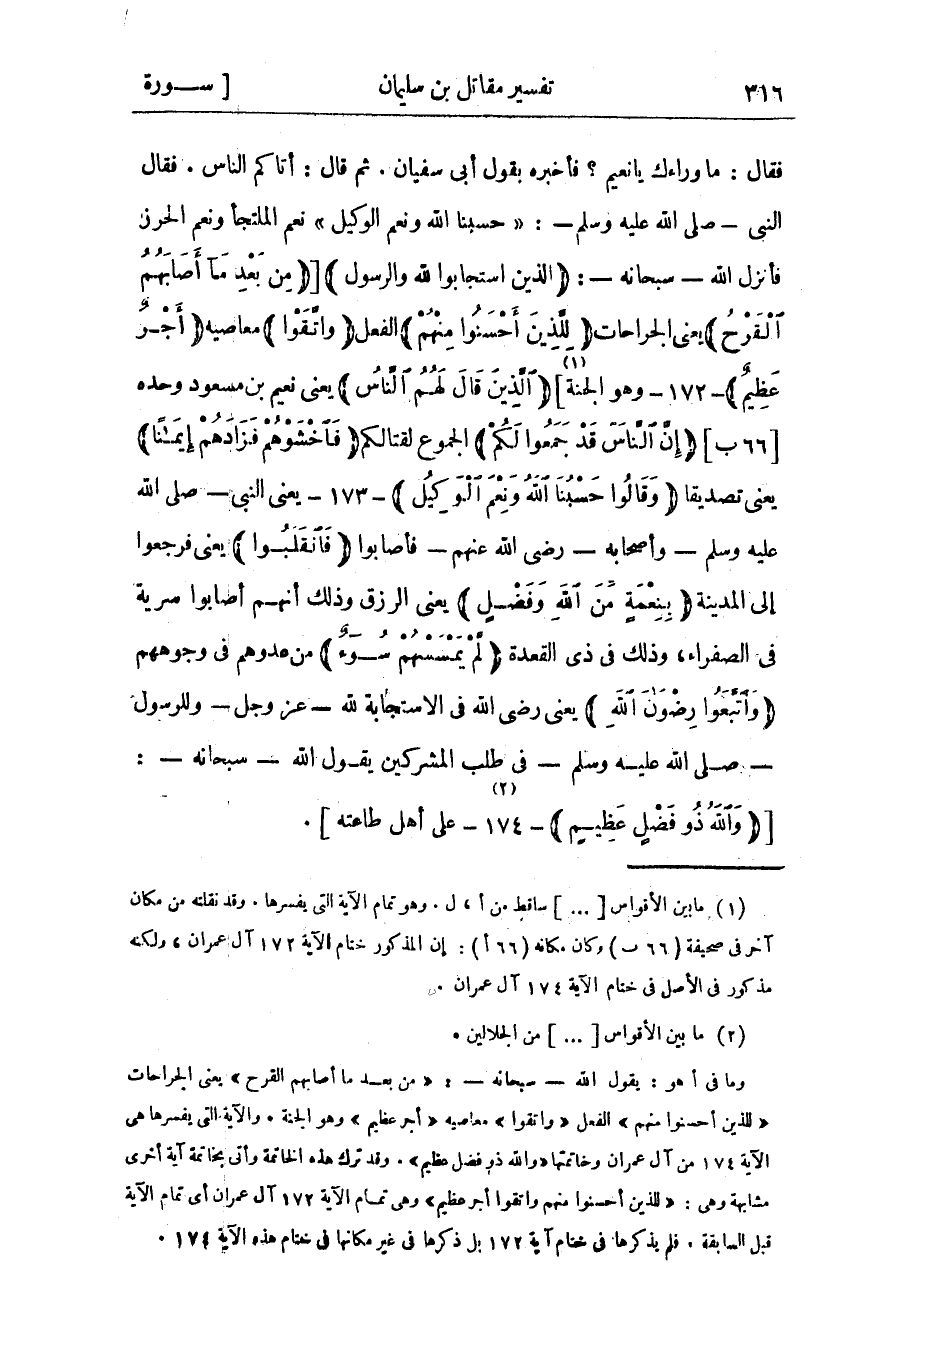 ٣١٦ تفسير مقاتل بن سليمان [ ســورة
فقال : ما وراءك يا نعيم ؟ فأخبره بقول أبى سفيان . ثم قال : أتاكم الناس . فقال
النبى – صلى الله عليه وسلم – : « حسبنا الله ونعم الوكيل » نعم الملتجأ ونعم الحرز
فأنزل الله – سبحانه – : ﴿ الذين استجابوا لله والرسول ﴾ [ ﴿ مِن بَعْدِ مَآ أَصَابَهُمُ
ٱلْقَرْحُ ﴾ يعنى الجراحات ﴿ لِلَّذِينَ أَحْسَنُوا مِنْهُمْ ﴾ الفعل ﴿ واتَّقَوْا ﴾ معاصيه ﴿ أَجْـرٌ
عَظِيمٌ ﴾ – ١٧٢ – وهو الجنة ] (١) ﴿ ٱلَّذِينَ قَالَ لَهُمُ ٱلنَّاسُ ﴾ يعنى نعيم بن مسعود وحده
[ ٦٦ ب ] ﴿ إِنَّ ٱلنَّاسَ قَدْ جَمَعُوا لَكُمْ ﴾ الجموع لقتالكم ﴿ فَٱخْشَوْهُمْ فَزَادَهُمْ إِيمَـٰنًا ﴾
يعنى تصديقا ﴿ وَقَالُوا حَسْبُنَا ٱللَّهُ وَنِعْمَ ٱلْوَكِيلُ ﴾ – ١٧٣ – يعنى النبى – صلى الله
عليه وسلم – وأصحابه – رضى الله عنهم – فأصابوا ﴿ فَٱنقَلَبُـوا ﴾ يعنى فرجعوا
إلى المدينة ﴿ بِنِعْمَةٍ مِّنَ ٱللَّهِ وَفَضْـلٍ ﴾ يعنى الرزق وذلك أنهـم أصابوا سرية
فى الصفراء، وذلك فى ذى القعدة ﴿ لَّمْ يَمْسَسْهُمْ سُــوٓءٌ ﴾ من عدوهم فى وجوههم
﴿ وَٱتَّبَعُوا رِضْوَٰنَ ٱللَّهِ ﴾ يعنى رضى الله فى الاستجابة لله – عز وجل – وللرسول
– صـلى الله عليـه وسلم – فى طلب المشركين يقـول الله – سبحانه – :
[ ﴿ وَٱللَّهُ ذُو فَضْلٍ عَظِيـمٍ ﴾ – ١٧٤ – على أهل طاعته ] (٢) .
(١) ما بين الأقواس [ ... ] ساقط من أ ، ل . وهو تمام الآية التى يفسرها . وقد نقلته من مكان
آخر فى صحيفة ( ٦٦ ب ) وكان مكانه ( ٦٦ أ ) : إن المذكور ختام الآية ١٧٢ آل عمران ، ولكنه
مذكور فى الأصل فى ختام الآية ١٧٤ آل عمران .
(٢) ما بين الأقواس [ ... ] من الجلالين .
وما فى أ هو : يقول الله – سبحانه – : « من بعــد ما أصابهم القرح » يعنى الجراحات
« للذين أحسنوا منهم » الفعل « واتقوا » معاصيه « أجر عظيم » وهو الجنة . والآية التى يفسرها هى
الآية ١٧٤ من آل عمران وخاتمتها « والله ذو فضل عظيم » . وقد ترك هذه الخاتمة وأتى بخاتمة آية أخرى
مشابهة وهى : « للذين أحسنوا منهم واتقوا أجر عظيم » وهى تمـام الآية ١٧٢ آل عمران أى تمام الآية
قبل السابقة . فلم يذكرها فى ختام آية ١٧٢ بل ذكرها فى غير مكانها فى ختام هذه الآية ١٧٤ .